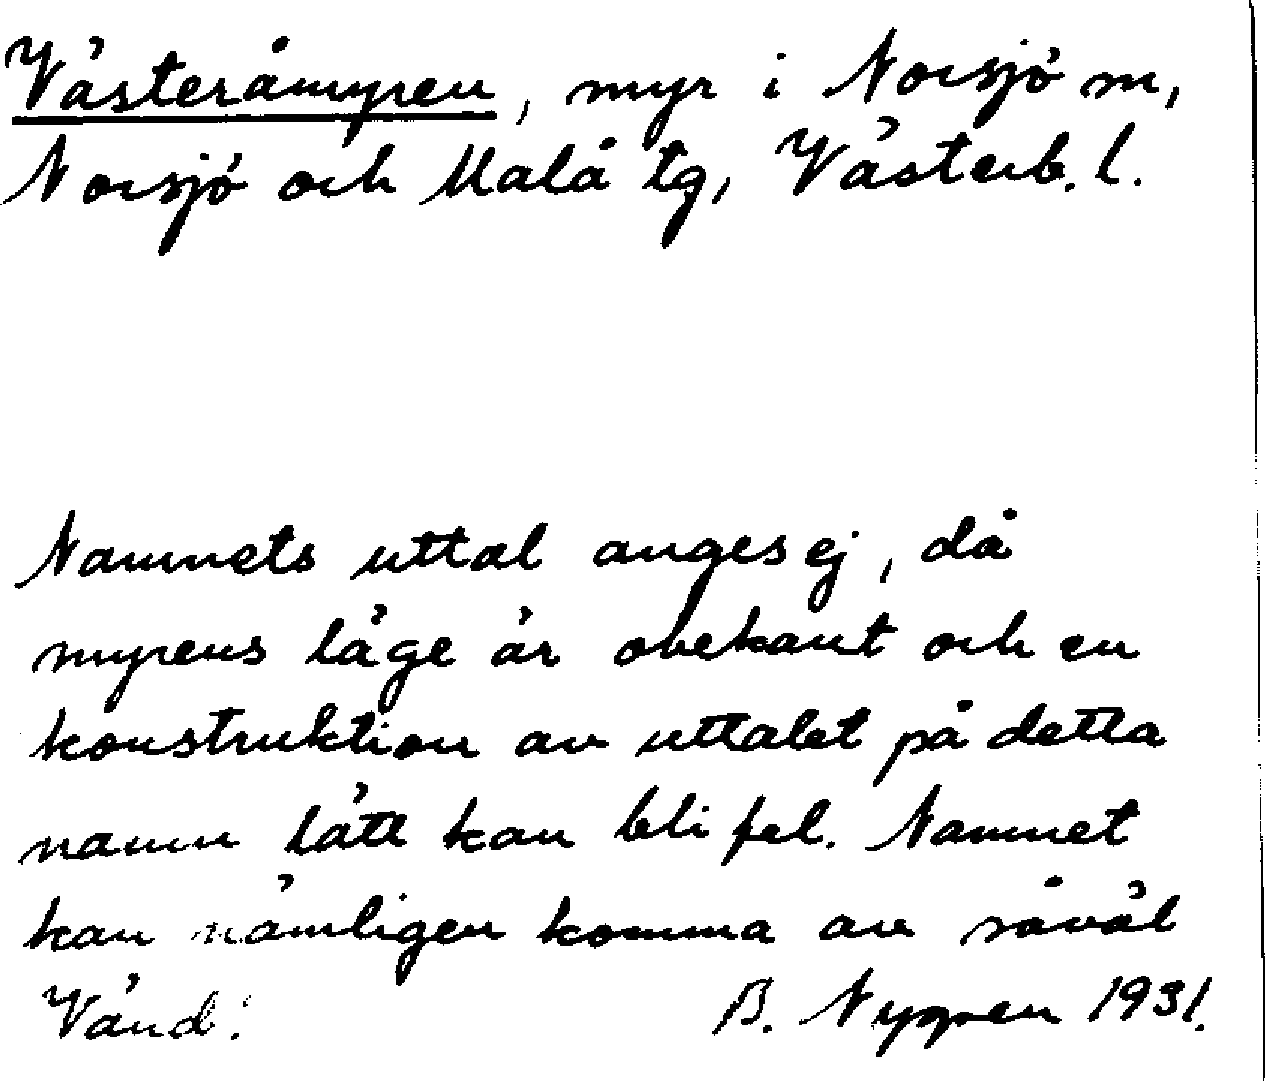 Västeråmyren, myr i Norsjö sn,
Norsjö och Malå tg, Västerb. l.
Namnets uttal anges ej, då
myrens läge är obekant och en
konstruktion av uttalet på detta
namn lätt kan bli fel. Namnet
kan nämligen komma av såväl
Vänd! B. Nygren 1931.